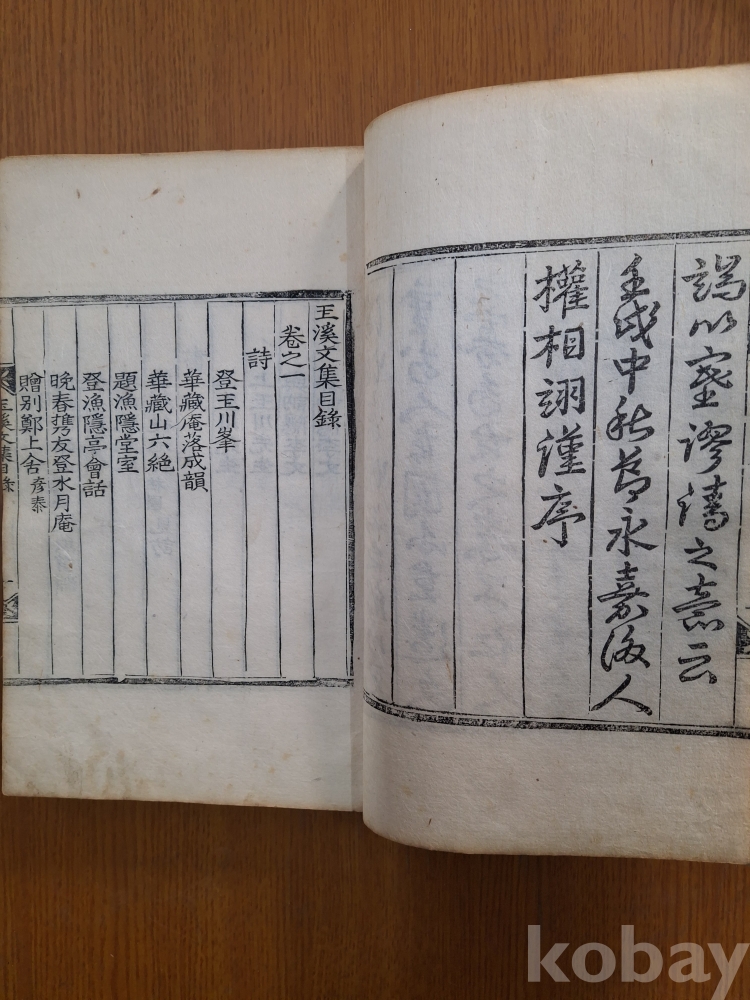 謁以塞謬請之意云
壬戌中秋節永嘉後人
權相翊謹序
玉溪文集目錄
卷之一
詩
登玉川峯
華藏庵落成韻
華藏山六絶
題漁隱堂室
登漁隱亭會話
晩春携友登水月庵
贈別鄭上舍 彦泰
玉溪文集目錄
kobay